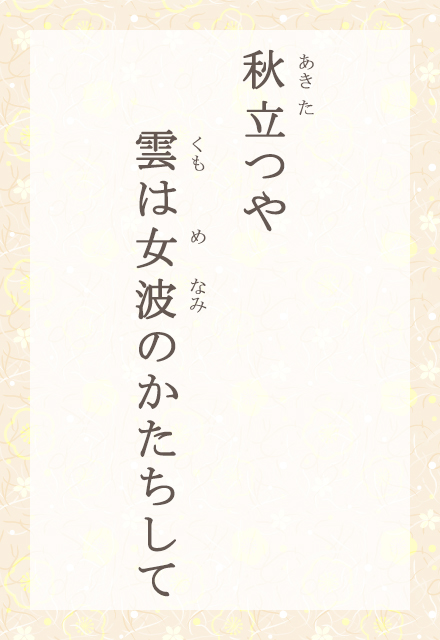 秋立つや
あきた
雲は女波のかたちして
くも め なみ